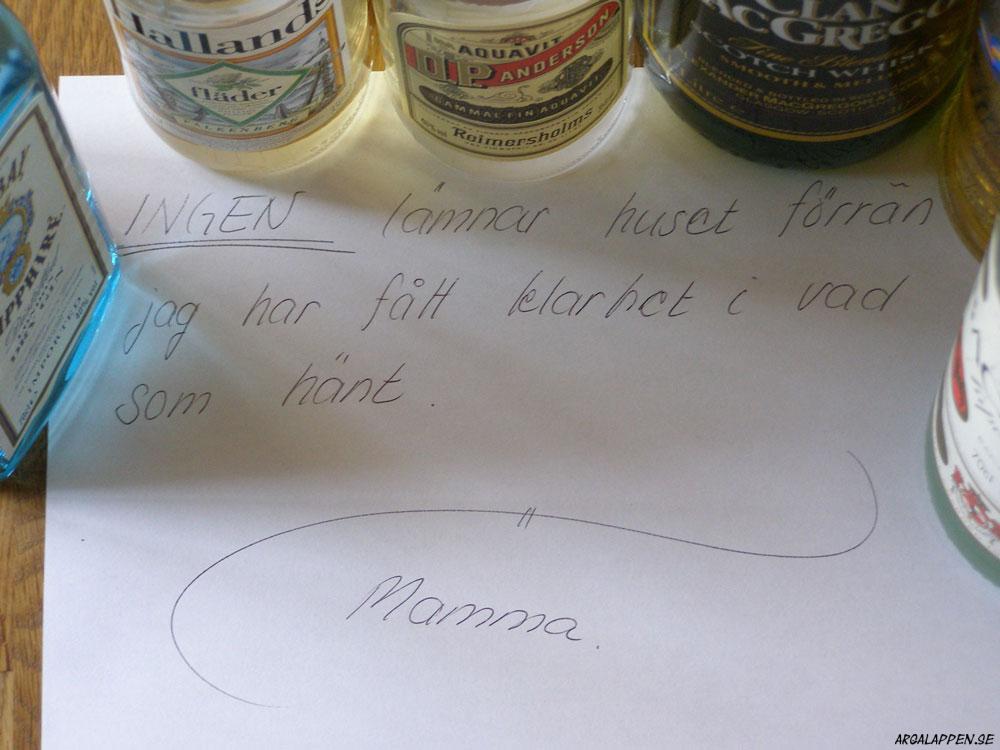 Hallands
fläder
FALKENBERG
AQUAVIT
O.P. ANDERSON
GAMMAL FIN AQUAVIT
Reimersholms
CLAN
MACGREGOR
SCOTCH WHISKY
SMOOTH &
SAPPHIRE
DRY GIN
IMPORTED
70cl
INGEN lämnar huset förrän
jag har fått klarhet i vad
som hänt.
Mamma.
ARGALAPPEN.SE